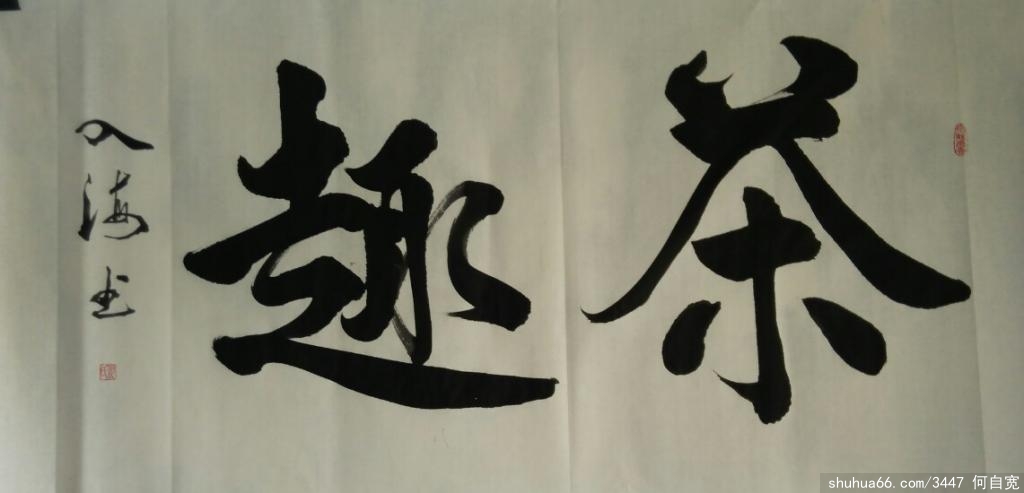 茶趣
入海书
shuhua66.com/3447 何自宽